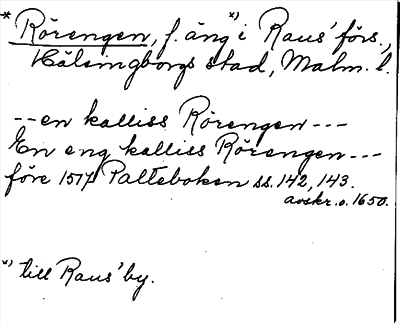 * Rörengen, f. äng *) i Raus' förs.,
Hälsingborgs stad, Malm. l.
-- en kalliss Rörengen ---
En eng kalliss Rörengen ---
före 1517 Palteboken ss. 142, 143.
avskr. o. 1650.
*) till Raus' by.